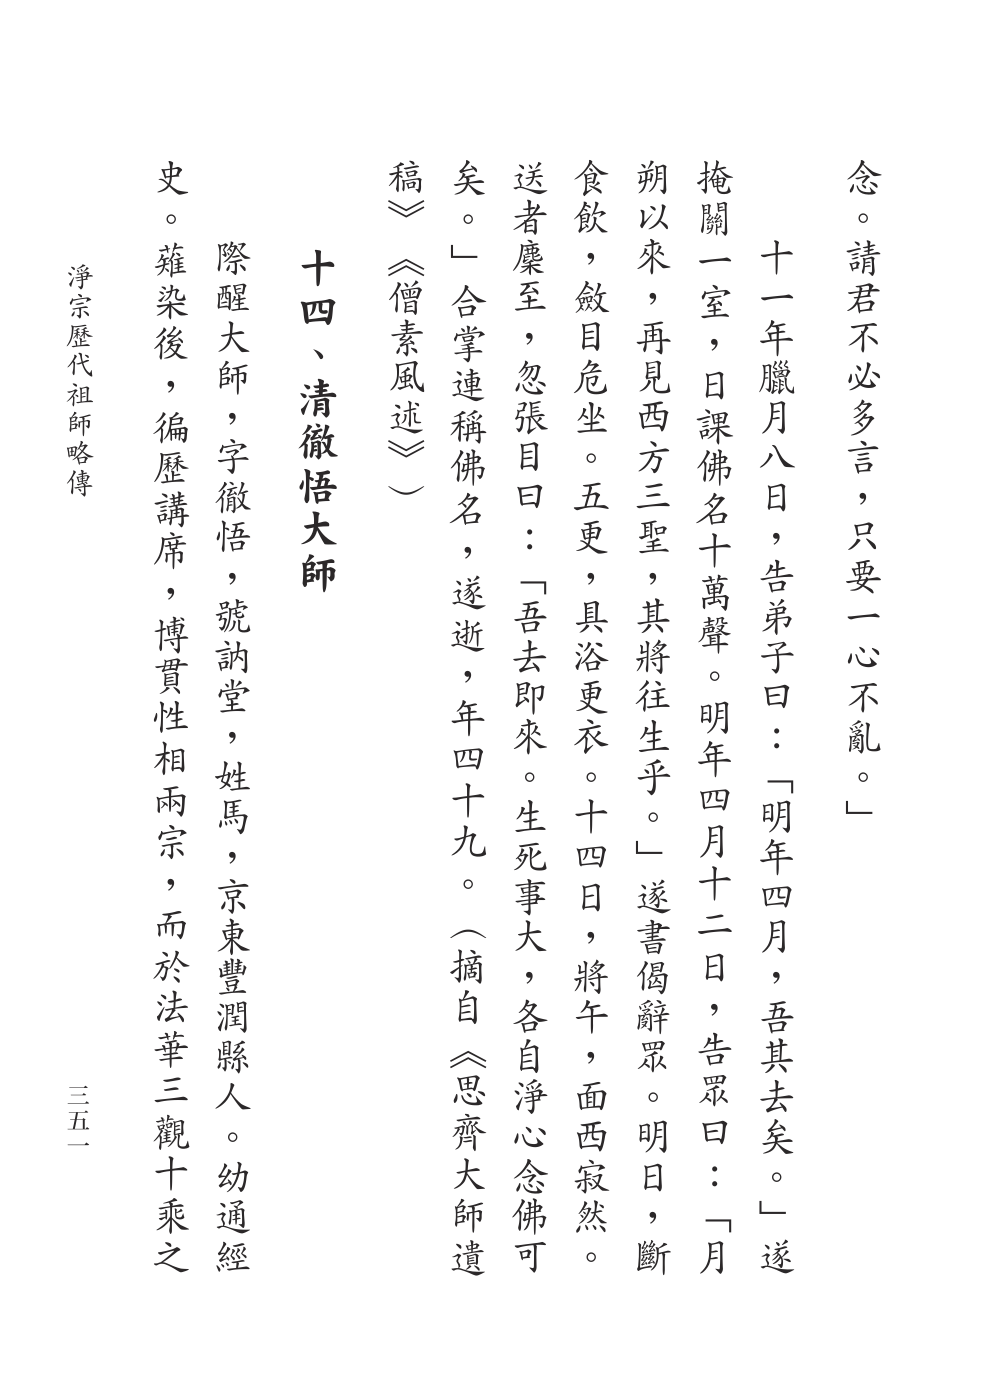 念。請君不必多言，只要一心不亂。」
十一年臘月八日，告弟子曰：「明年四月，吾其去矣。」遂
掩關一室，日課佛名十萬聲。明年四月十二日，告眾曰：「月
朔以來，再見西方三聖，其將往生乎。」遂書偈辭眾。明日，斷
食飲，斂目危坐。五更，具浴更衣。十四日，將午，面西寂然。
送者麇至，忽張目曰：「吾去即來。生死事大，各自淨心念佛可
矣。」合掌連稱佛名，遂逝，年四十九。（摘自《思齊大師遺
稿》《僧素風述》）
十四、清徹悟大師
際醒大師，字徹悟，號訥堂，姓馬，京東豐潤縣人。幼通經
史。薙染後，徧歷講席，博貫性相兩宗，而於法華三觀十乘之
淨宗歷代祖師略傳
三五一